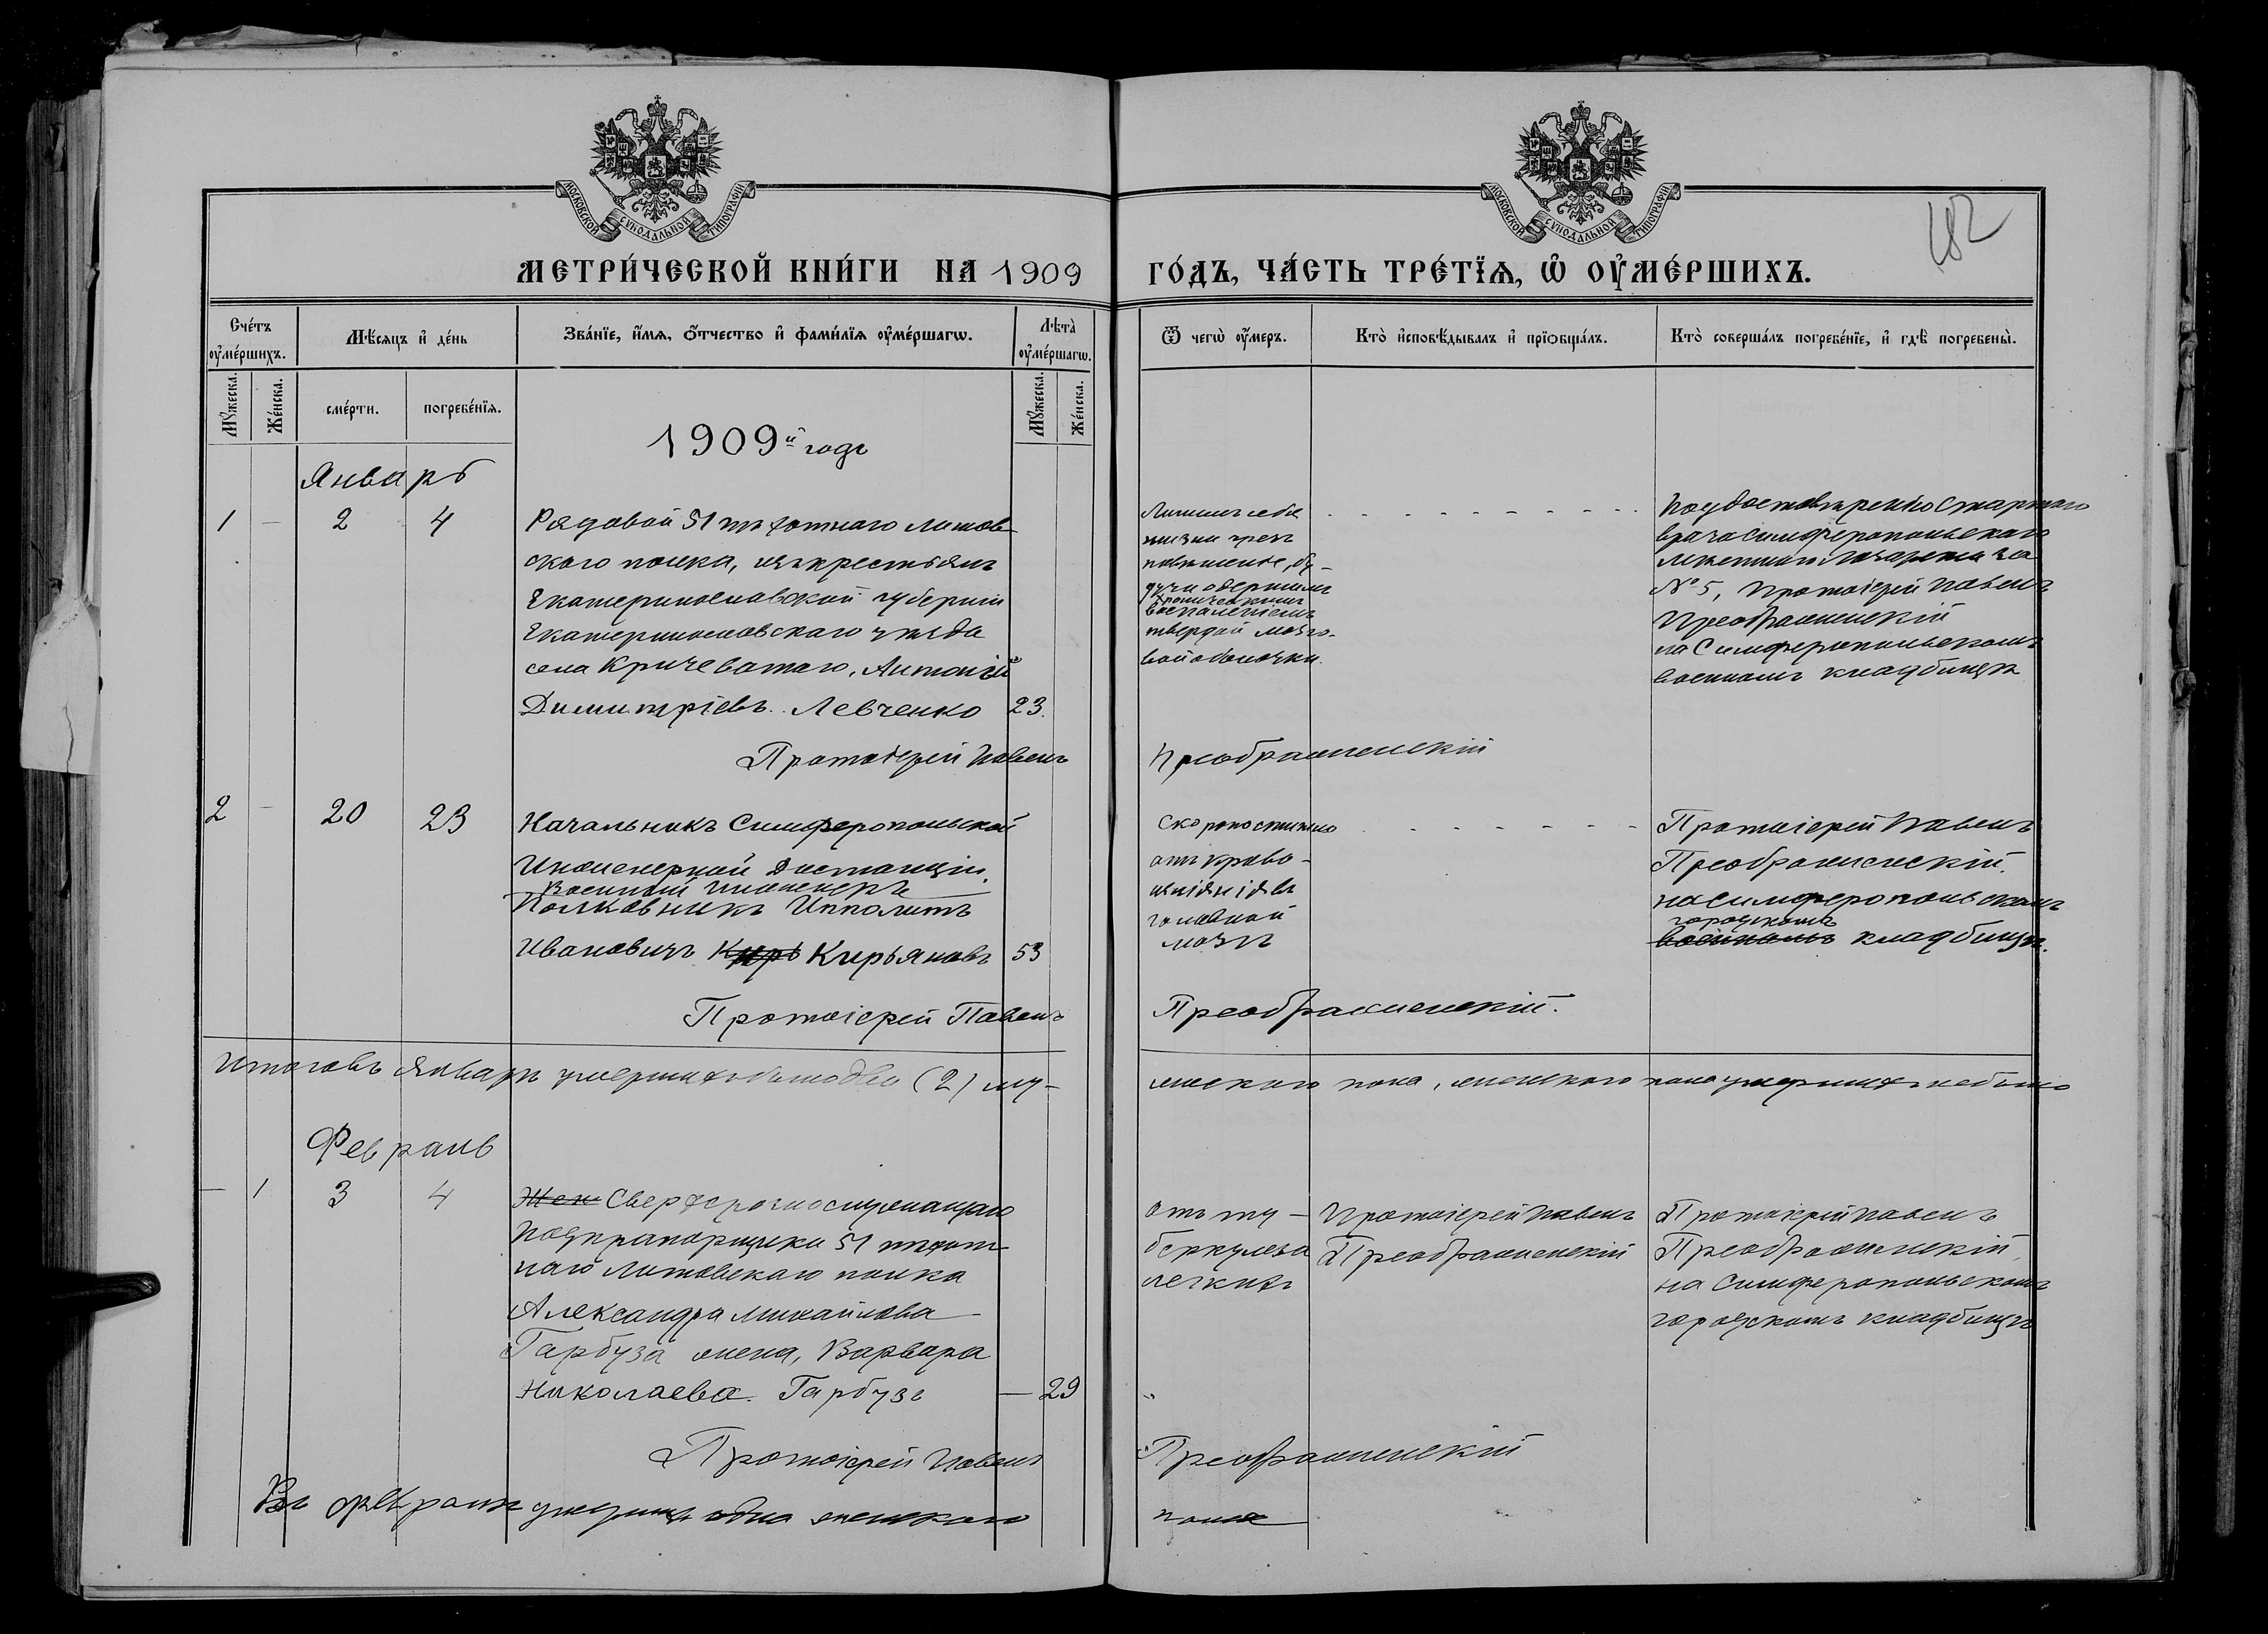 МОСКОВСКОЙ СѴНОДАЛЬНОЙ ТИПОГРАФІИ
МОСКОВСКОЙ СѴНОДАЛЬНОЙ ТИПОГРАФІИ
182
МЕТРИ́ЧЕСКОЙ КНИ́ГИ НА 1909 ГО́ДЪ, ЧА́СТЬ ТРЕ́ТЇѦ, Ѽ ОУ҆МЕ́РШИХЪ.
Сче́тъ оу҆ме́ршихъ.
Мѣ́сяцъ и҆ де́нь
Зва́нїе, и҆́мѧ, ѻ҆́тчество и҆ фами́лїѧ оу҆ме́ршагѡ.
Лѣта̀ оу҆ме́ршагѡ.
Ѿ чегѡ̀ оу҆́меръ.
Кто̀ и҆сповѣ́дывалъ и҆ прїѻбща́лъ.
Кто̀ соверша́лъ погребе́нїе, и҆ гдѣ̀ погребены̀.
Мꙋ́жеска.
Же́нска.
сме́рти.
погребе́нїѧ.
Мꙋ́жеска.
Же́нска.
1909й годъ
Январь
1 — 2 4
Рядовой 51 пѣхотнаго Литов-
скаго полка, изъ крестьянъ
Екатеринославской губерніи
Екатеринославскаго уѣзда
села Кричеватаго, Антоній
Димитріевъ Левченко 23.
Лишилъ себя
жизни чрезъ
повѣшеніе, бу-
дучи одержимъ
хроническимъ
воспаленіемъ
твердой мозго-
вой оболочки.
По удостовѣренію Старшаго
врача Симферопольскаго
мѣстнаго лазарета за
№ 5, Протоіерей Павелъ
Преображенскій
на Симферопольскомъ
военномъ кладбищѣ
Протоіерей Павелъ Преображенскій
2 — 20 23
Начальникъ Симферопольской
Инженерной Дистанціи,
Военный инженеръ
Полковникъ Ипполитъ
Ивановичъ Кирь Кирьяновъ 53
Скоропостижно
отъ крово-
изліянія въ
головной
мозгъ
Протоіерей Павелъ
Преображенскій.
на Симферопольскомъ
городскомъ
военномъ кладбищѣ.
Протоіерей Павелъ Преображенскій.
Итого въ Январѣ умершихъ было два (2) му- жескаго пола, женскаго пола умершихъ не было
Февраль
— 1 3 4
Жен Сверхсрочнослужащаго
Подпрапорщика 51 пѣхот-
наго Литовскаго полка
Александра Михайлова
Гарбуза жена, Варвара
Николаева Гарбузъ — 29
Отъ ту-
беркулеза
легкихъ
Протоіерей Павелъ
Преображенскій
Протоіерей Павелъ
Преображенскій,
на Симферопольскомъ
городскомъ кладбищѣ
Протоіерей Павелъ Преображенскій
Въ февралѣ умерша одна женскаго пола